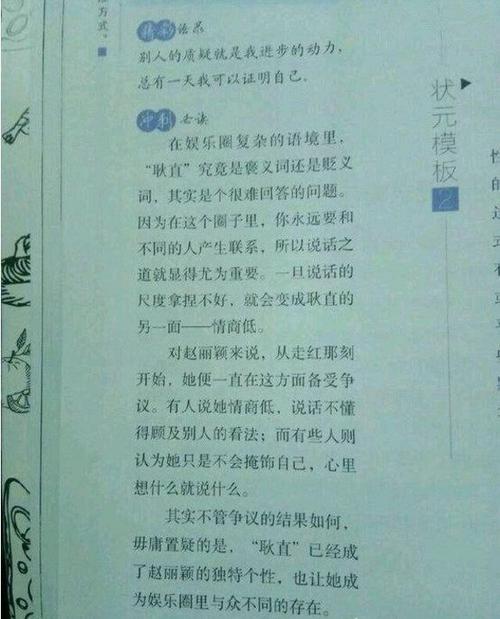 方式。■
精彩语录
别人的质疑就是我进步的动力，
总有一天我可以证明自己。
冲刺必读
在娱乐圈复杂的语境里，
“耿直”究竟是褒义词还是贬义
词，其实是个很难回答的问题。
因为在这个圈子里，你永远要和
不同的人产生联系，所以说话之
道就显得尤为重要。一旦说话的
尺度拿捏不好，就会变成耿直的
另一面——情商低。
对赵丽颖来说，从走红那刻
开始，她便一直在这方面备受争
议。有人说她情商低，说话不懂
得顾及别人的看法；而有些人则
认为她只是不会掩饰自己，心里
想什么就说什么。
其实不管争议的结果如何，
毋庸置疑的是，“耿直”已经成
了赵丽颖的独特个性，也让她成
为娱乐圈里与众不同的存在。
状元模板2
性
的